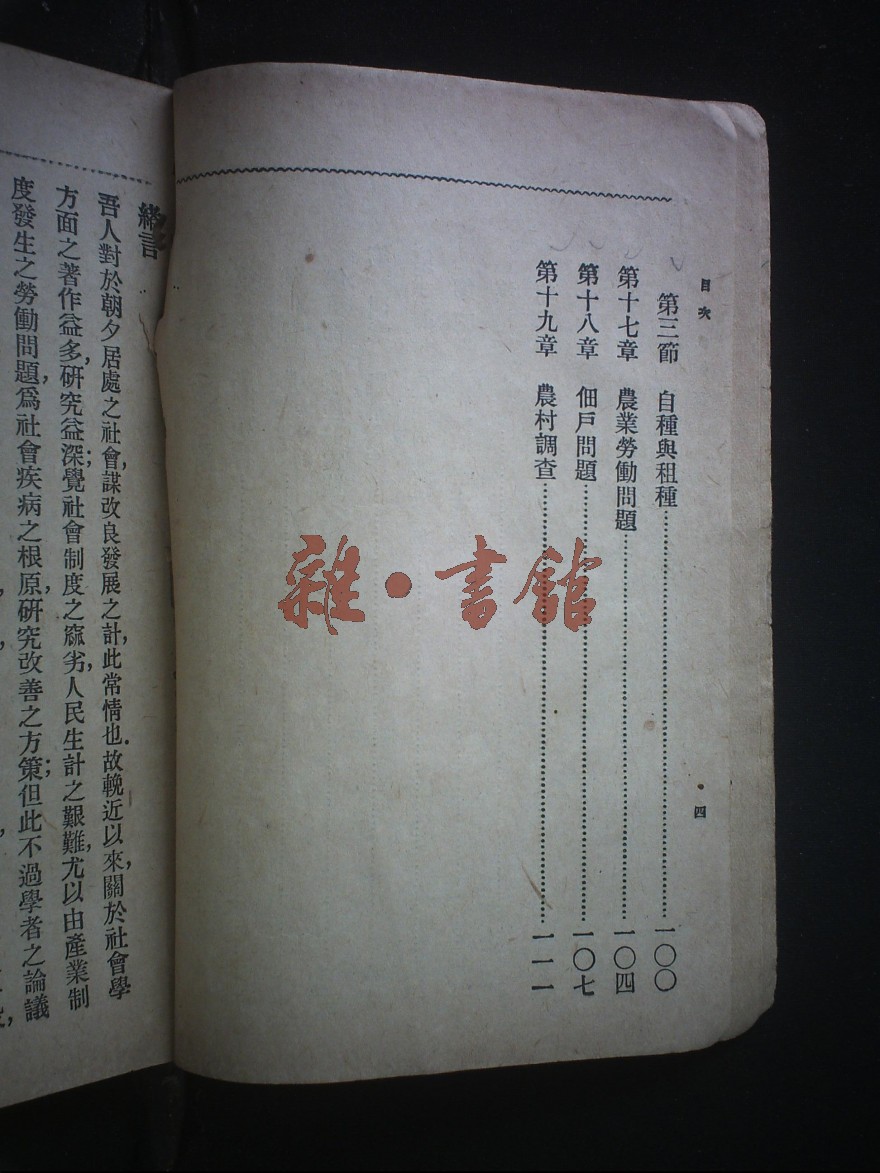 目次
四
第三節 自種與租種……一〇〇
第十七章 農業勞働問題……一〇四
第十八章 佃戶問題……一〇七
第十九章 農村調查……一一一
緒言
吾人對於朝夕居處之社會,謀改良發展之計,此常情也.故輓近以來,關於社會學
方面之著作益多,研究益深;覺社會制度之窳劣,人民生計之艱難,尤以由產業制
度發生之勞働問題,爲社會疾病之根原,研究改善之方策;但此不過學者之論議
雜·書館